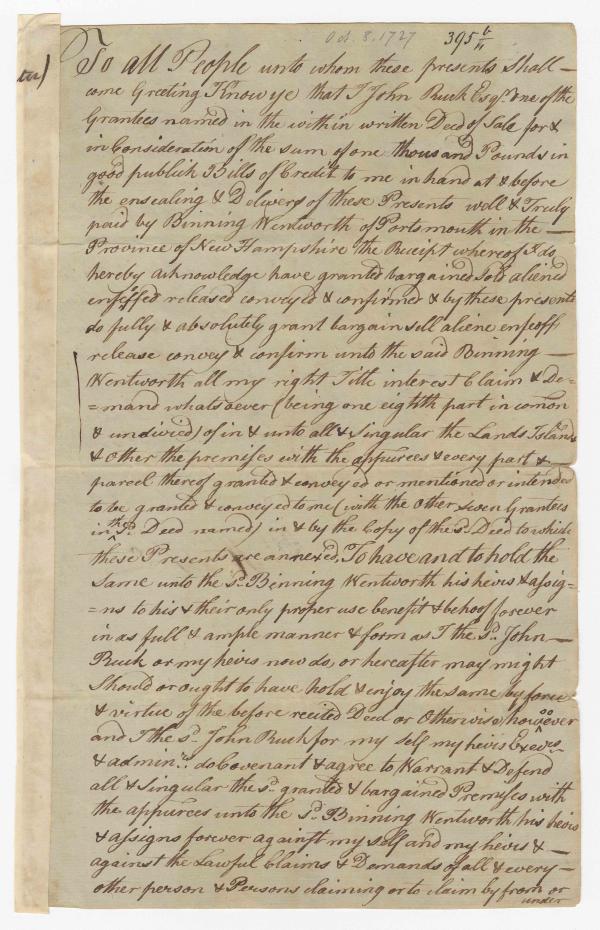 Oct. 8. 1727
395 6/11
tu)
To all People unto whom these presents Shall —
come Greeting Know ye that I John Ruck Esqr. one of the
Grantees named in the within written Deed of Sale for &
in Consideration of the sum of one thousand Pounds in
good publick Bills of Credit to me in hand at & before
the ensealing & Delivery of these Presents well & Truly
paid by Binning Wentworth of Portsmouth in the —
Province of New Hampshire the Receipt whereof I do
hereby acknowledge have granted bargained Sold aliened
enfeffed released conveyed & confirmed & by these presents
do fully & absolutely grant bargain sell aliene enfeoff
release convey & confirm unto the said Binning —
Wentworth all my right Title interest Claim & De=
=mand whatsoever (being one eighth part in comon
& undivied) of in & unto all & Singular the Lands Islands
& other the premises with the appurces & every part & —
parcel thereof granted & conveyed or mentioned or intended
to be granted & conveyed to me (with the other seven Grantees
in the sd. Deed named) in & by the Copy of the sd. Deed to which
these Presents are annexed, To have and to hold the
Same unto the sd. Binning Wentworth his heirs & assig=
=ns to his & their only proper use benefit & behoof forever
in as full & ample manner & form as I the sd. John —
Ruck or my heirs now do, or hereafter may might
Should or ought to have hold & enjoy the same by force
& virtue of the before recited Deed or otherwise howsoever
and I the sd. John Ruck for my self my heirs Execrs.
& adminrs. do Covenant & agree to Warrant & Defend
all & Singular the sd. granted & bargained Premises with
the appurces unto the sd. Binning Wentworth his heirs
& assigns forever against my self and my heirs & —
against the Lawful Claims & Demands of all & every —
other person & Persons claiming or to claim by from or
under